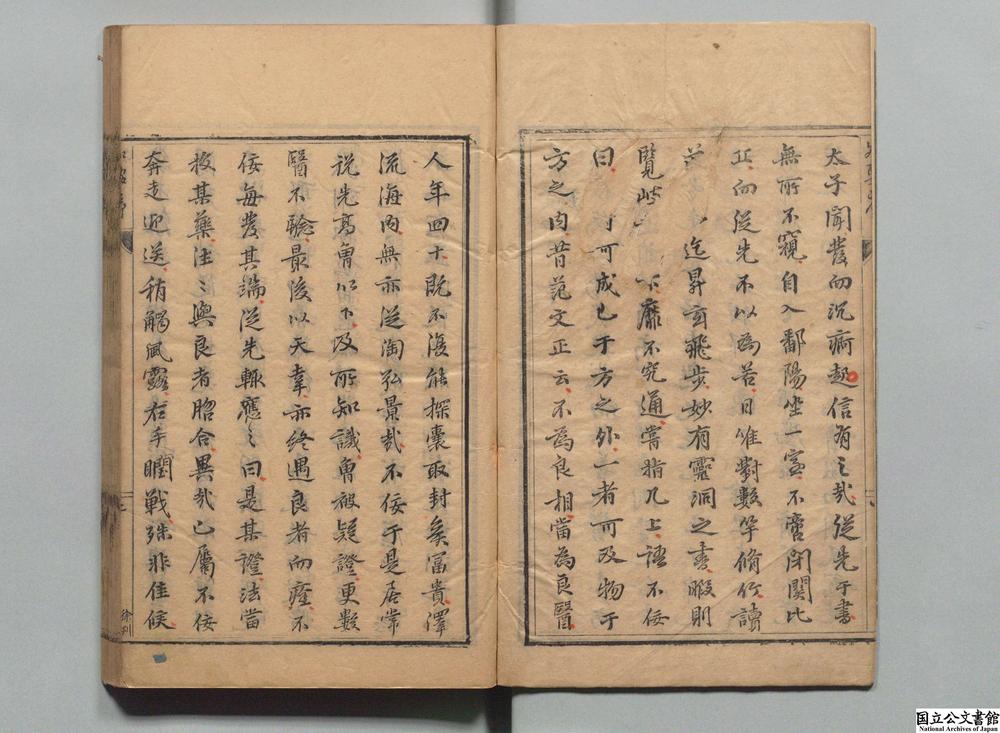 太子聞聲而沉痾起信有之哉從先于書
無所不窺自入鄱陽坐一室不啻閉關比
丘而從先不以為苦日惟對數竿脩竹讀
迄昇玄飛步妙有靈洞之書暇則
覽 靡不究通嘗指几上語不佞
曰 可成已于方之外一者可及物于
方之內昔范文正云不為良相當為良醫
人年四十既不復能探囊取封矣富貴澤
流海內無亦從淘弘景哉不佞于是居常
祝先高曾以下及所知識曾被疑證更數
醫不驗最後以天幸亦終遇良者而痊不
佞每發其端從先輒應之曰是某證法當
投某藥往往與良者昭合異哉已屬不佞
奔走迎送稍觸風露右手瞤戰殊非佳候
徐刊
国立公文書館
National Archives of Japan